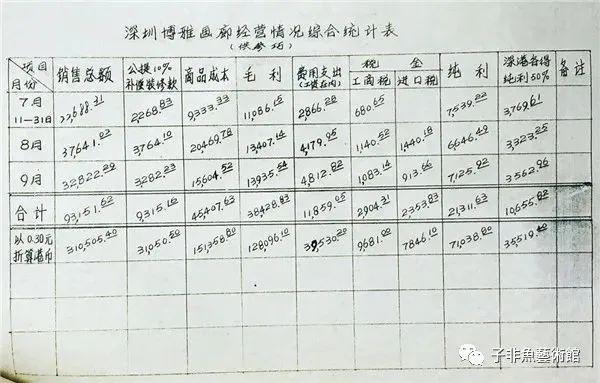 深圳博雅画廊经营情况综合统计表
(供参考)
项目
月份
销售总额
公提10%
补偿装修款
商品成本
毛利
费用支出
(工资在内)
税金
工商税
进口税
纯利
深港各得
纯利50%
备注
7月
11—31日
22,688.31
2,268.83
9,333.33
11,086.15
2,866.28
680.65
7,539.22
3,769.61
8月
37,641.02
3,764.10
20,469.78
13,407.14
4,179.95
1,140.52
1,440.18
6,646.49
3,323.25
9月
32,822.29
3,282.23
15,604.52
13,935.54
4,812.82
1,083.14
913.66
7,125.92
3,562.96
合计
93,151.62
9,315.16
45,407.63
38,428.83
11,859.05
2,904.31
2,353.83
21,311.63
10,655.82
以0.30元
折算港币
310,505.40
31,050.50
151,358.80
128,096.10
39,530.20
9,681.00
7846.10
71,038.80
35,519.40
子非魚藝術館